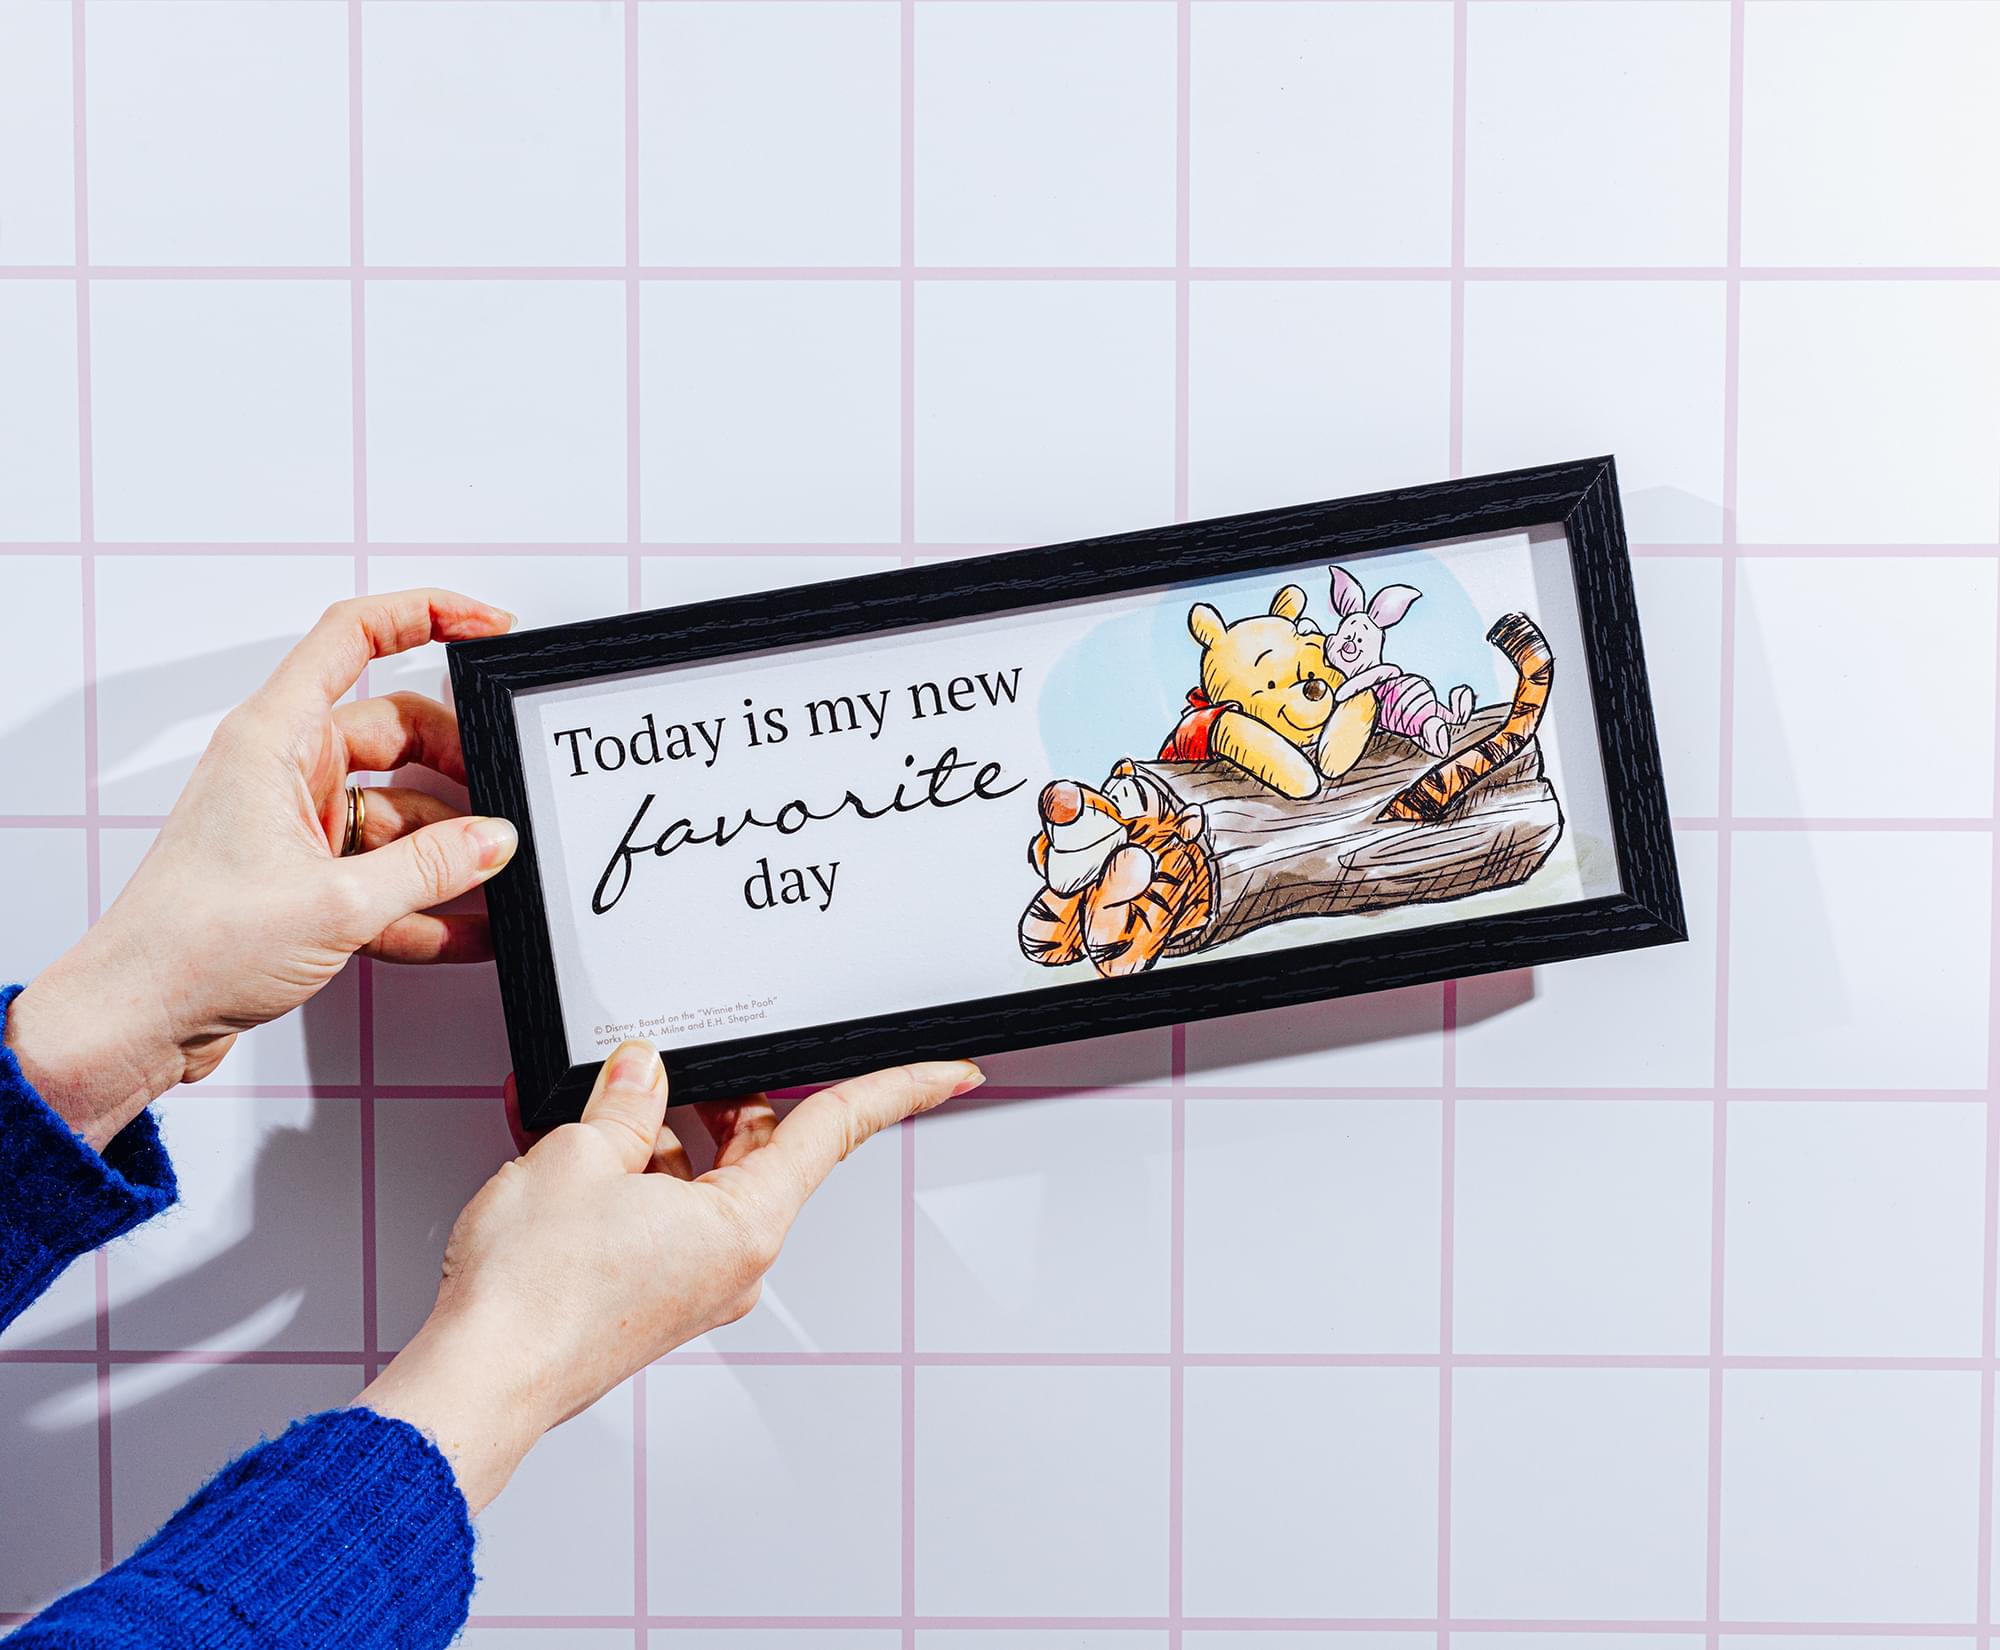 Today is my new
favorite
day
© Disney. Based on the "Winnie the Pooh"
works by A.A. Milne and E.H. Shepard.